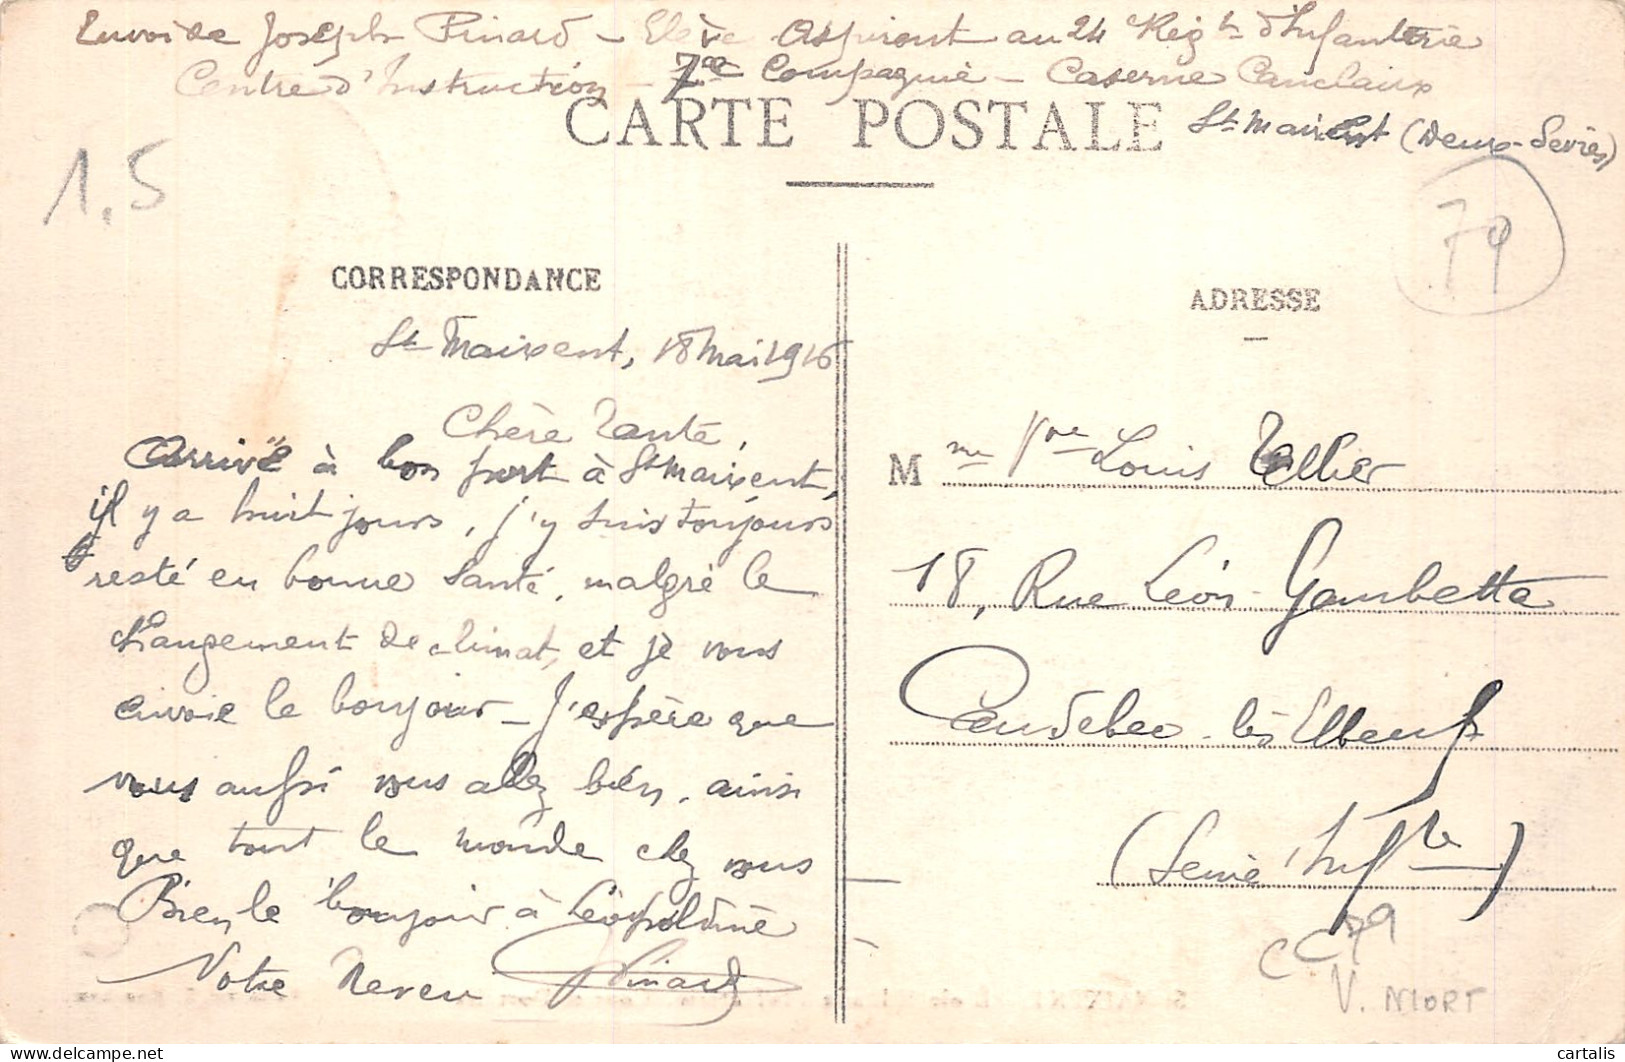 Envoi de Joseph Pinard – Elève Aspirant au 24 Reg^t d'Infanterie
Centre d'Instruction – 7^me Compagnie – Caserne Canclaux
St Maixent (Deux-Sèvres)
CARTE POSTALE
1,5
79
CORRESPONDANCE
St Maixent, 18 mai 1916
Chère Tante,
Arrivé à bon port à St Maixent,
il y a huit jours, j'y suis toujours
resté en bonne santé, malgré le
changement de climat, et je vous
envoie le bonjour – J'espère que
vous aussi vous allez bien, ainsi
que tout le monde chez vous
Bien le bonjour à Léopoldine
Votre Neveu Pinard
ADRESSE
M^me V^ve Louis Tellier
18, Rue Léon Gambetta
Caudebec-lès-Elbeuf
(Seine Inf^re)
CC 79
V. NIORT
cartalis